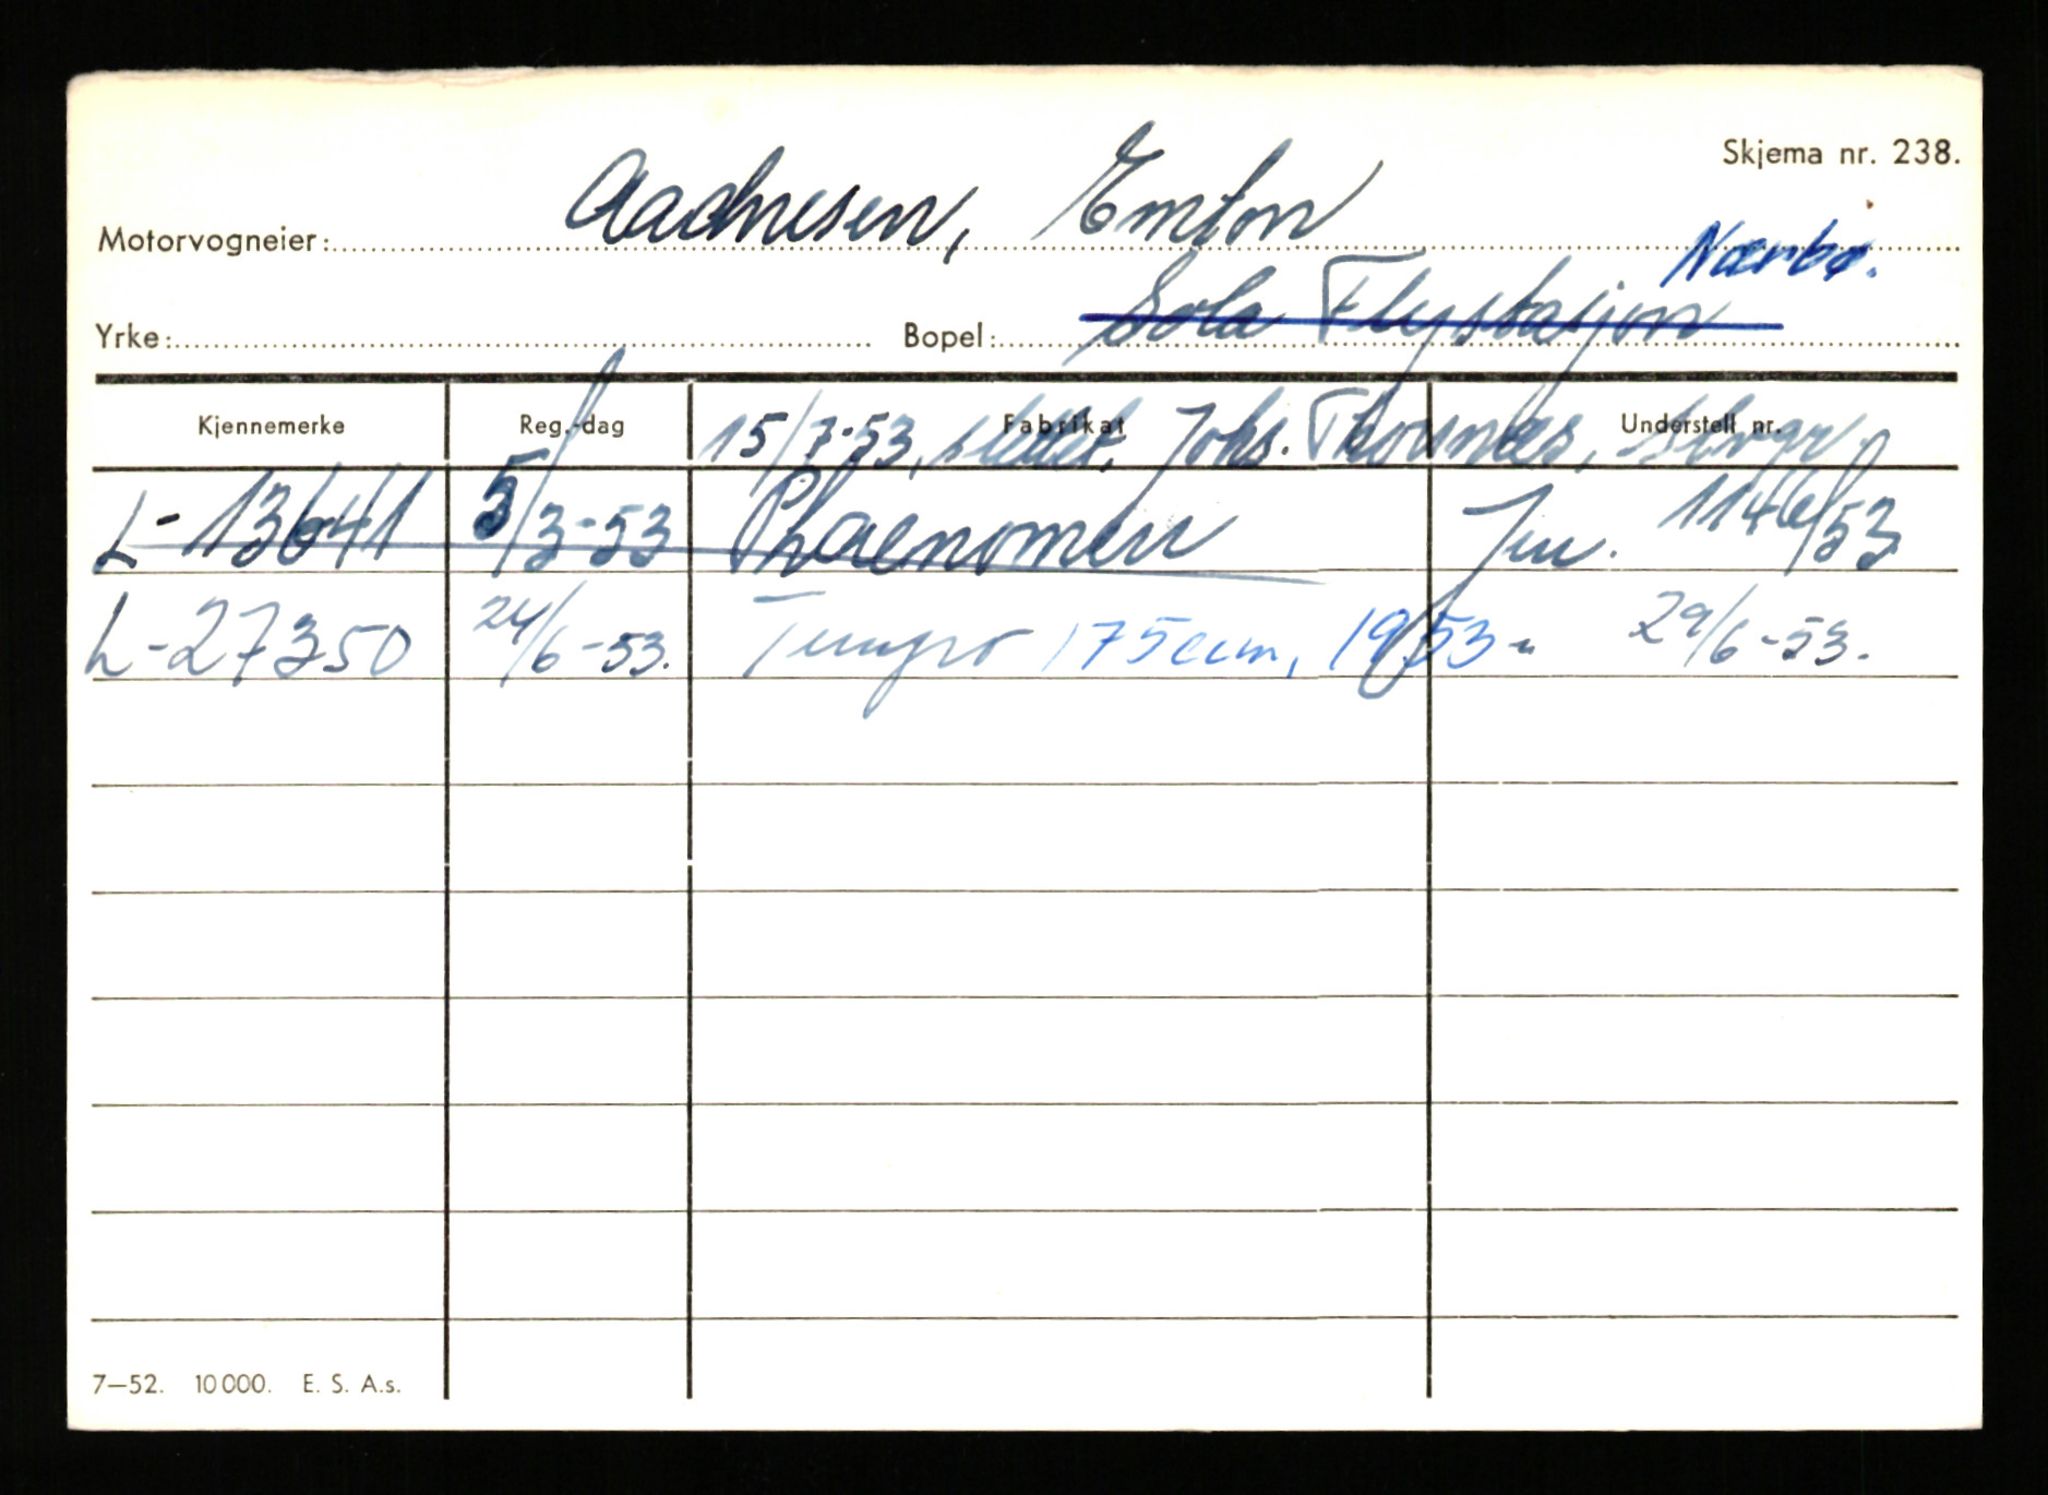 Skjema nr. 238.
Motorvogneier: Aadnesen, Emton
Nærbø.
Yrke: Bopel: Sola Flystasjon
Kjennemerke Reg.-dag Fabrikat Understell nr.
15/7-53, slettet, Johs. Thorsnæs,
L-13641 5/3-53 Phaenomen Jnr. 1146/53
L-27350 24/6-53. Tempo 175ccm, 1953 29/6-53.
7—52. 10 000. E. S. A.s.